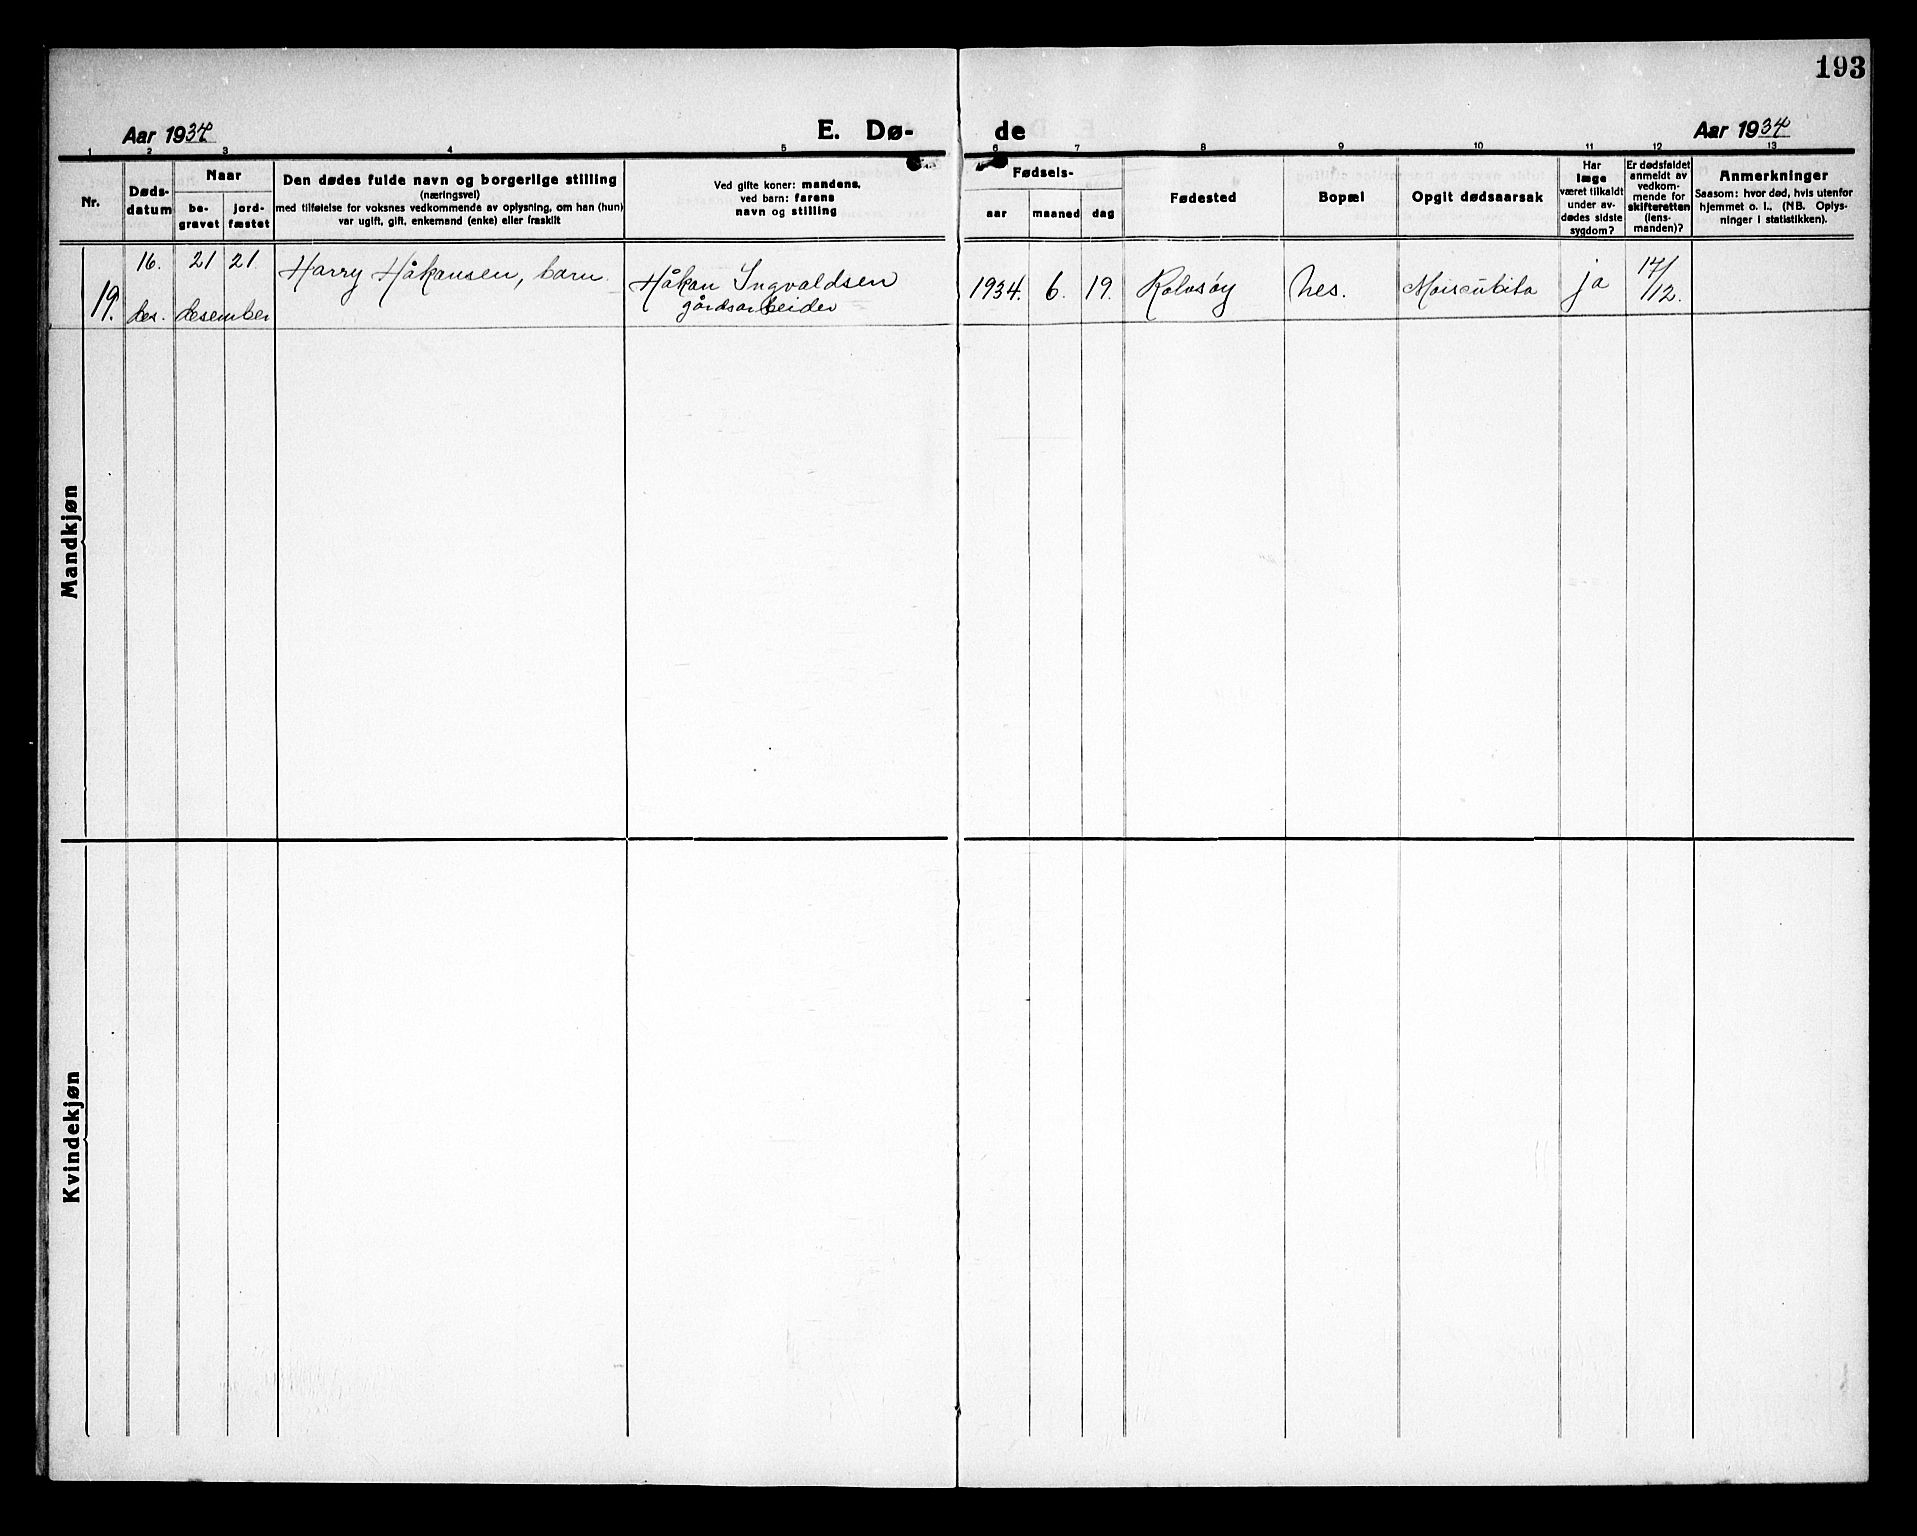 193
Aar 1934
E. Dø-
de
Aar 1934
1 2 3 4 5 6 7 8 9 10 11 12 13
Nr.
Døds-
datum
Naar
be-
gravet
jord-
fæstet
Den dødes fulde navn og borgerlige stilling
(næringsvei)
med tilføielse for voksnes vedkommende av oplysning, om han (hun)
var ugift, gift, enkemand (enke) eller fraskilt
Ved gifte koner: mandens,
ved barn: farens
navn og stilling
Fødsels-
aar
maaned
dag
Fødested
Bopæl
Opgit dødsaarsak
Har
læge
været tilkaldt
under av-
dødes sidste
sygdom?
Er dødsfaldet
anmeldt av
vedkom-
mende for
skifteretten
(lens-
manden)?
Anmerkninger
Saasom: hvor død, hvis utenfor
hjemmet o. l., (NB. Oplys-
ninger i statistikken).
Mandkjøn
19.
16.
des.
21 21.
desember
Harry Håkansen, barn.
Håkan Ingvaldsen
gårdsarbeider
1934. 6. 19. Rolvsøy Nes.
ja
17/12.
Kvindekjøn